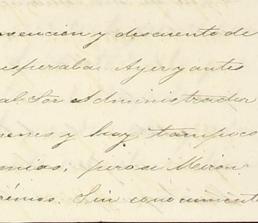 vención y descuento de
esperaba. Ayer y antes
al Sor Administrador
menes y hoy tampoco
pero se
Sin conocimiento